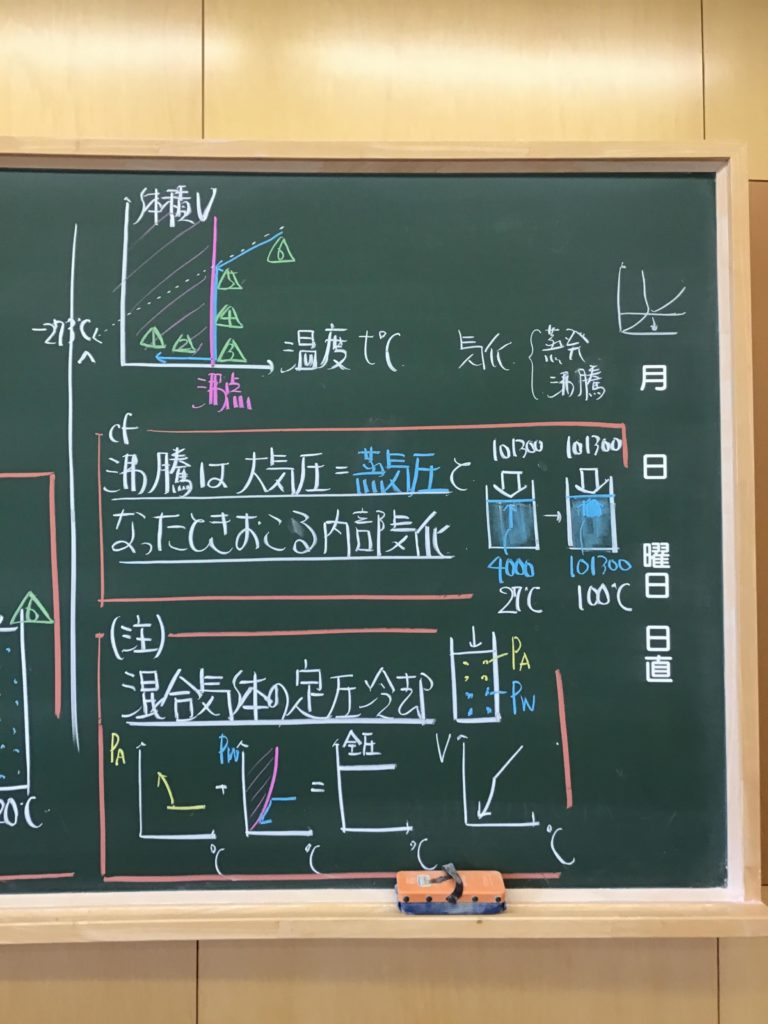 体積V
⑥
⑤
④
-273℃
① ② ③
温度 t℃
沸点
気化 蒸発
沸騰
月
日
曜日
日直
cf
沸騰は大気圧=蒸気圧と
なったときおこる内部気化
101300 101300
4000 101300
27℃ 100℃
(注)
混合気体の定圧冷却
PA
PW
PA + PW = 全圧 V
℃ ℃ ℃ ℃
⑥
20℃